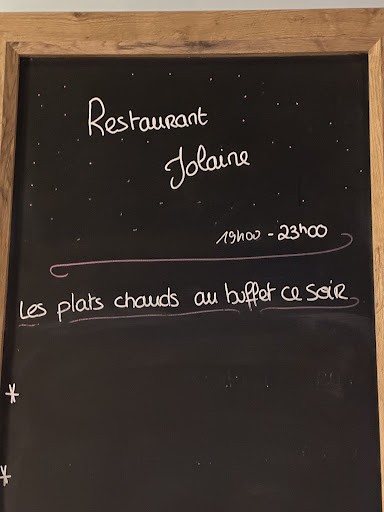 Restaurant
Jolaine
19h00 - 23h00
Les plats chauds au buffet ce soir
*
*